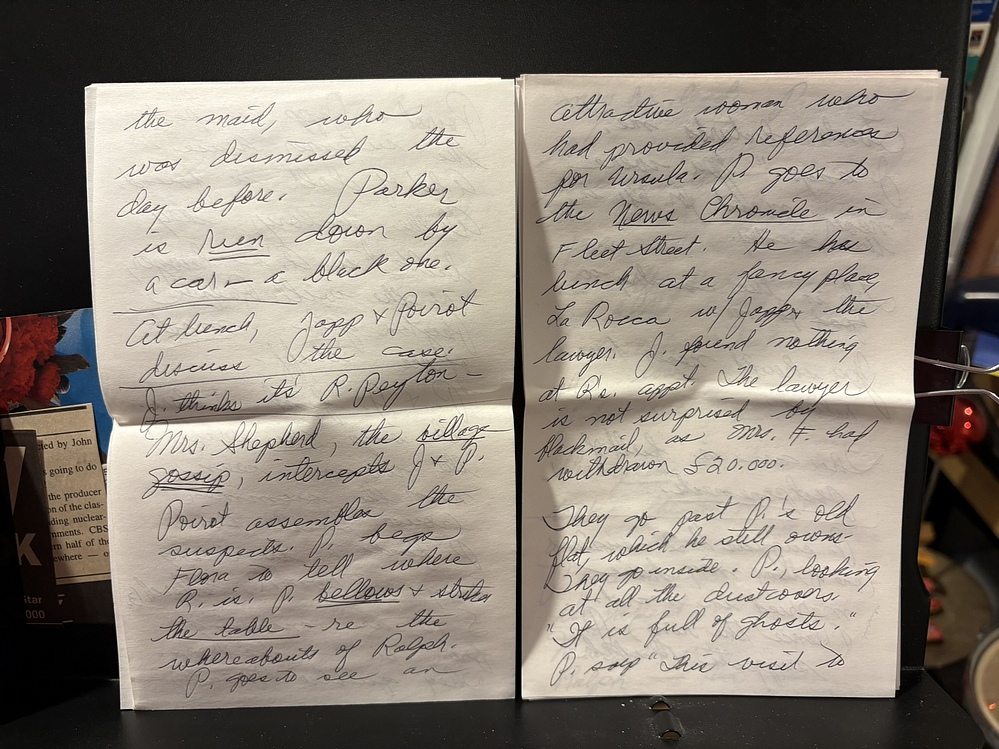 the maid, who
was dismissed the
day before. Parker
is run down by
a car — a black one.
At lunch, Japp & Poirot
discuss the case.
J. thinks it's R. Peyton —
Mrs. Shepherd, the village
gossip, intercepts J & P.
Poirot assembles the
suspects. P. begs
Flora to tell where
R. is. P. bellows & strikes
the table - re the
whereabouts of Ralph.
P. goes to see an
attractive woman who
had provided references
for Ursula. P. goes to
the News Chronicle in
Fleet Street. He has
lunch at a fancy place,
La Rocca w/ Japp & the
lawyer. J. found nothing
at Rs. appt. The lawyer
is not surprised by
blackmail, as Mrs. F. had
withdrawn £20.000.
They go past P.'s old
flat, which he still owns.
They go inside. P., looking
at all the dustcovers.
"It is full of ghosts."
P. says "This visit to
ed by John
going to do
the producer
on of the clas-
ding nuclear-
nments. CBS
rn half of the
ewhere — o
K
Star
000